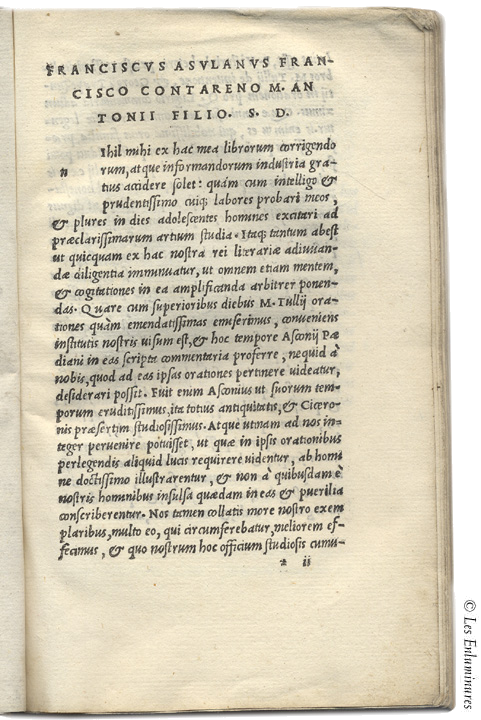 FRANCISCVS ASVLANVS FRAN-
CISCO CONTARENO M. AN
TONII FILIO. S. D.
n Ihil mihi ex hac mea librorum corrigendo
rum, atque informandorum industria gra-
tius accidere solet: quàm cum intelligo &
prudentissimo cuiq; labores probari meos,
& plures in dies adolescentes homines excitari ad
præclarissimarum artium studia. Itaq; tantum abest
ut quicquam ex hac nostra rei literariæ adiuuan-
dæ diligentia imminuatur, ut omnem etiam mentem,
& cogitationes in ea amplificanda arbitrer ponen-
das. Quare cum superioribus diebus M. Tullij ora-
tiones quàm emendatissimas emiserimus, conueniens
institutis nostris uisum est, & hoc tempore Asconij Pæ
diani in eas scripta commentaria proferre, nequid à
nobis, quod ad eas ipsas orationes pertinere uideatur,
desiderari possit. Fuit enim Asconius ut suorum tem-
porum eruditissimus, ita totius antiquitatis, & Cicero-
nis præsertim studiosissimus. Atque utinam ad nos in-
teger peruenire potuisset, ut quæ in ipsis orationibus
perlegendis aliquid lucis requirere uidentur, ab homi
ne doctissimo illustrarentur, & non à quibusdam è
nostris hominibus insulsa quædam in eas & puerilia
conscriberentur. Nos tamen collatis more nostro exem
plaribus, multo eo, qui circumferebatur, meliorem ef-
fecimus, & quo nostrum hoc officium studiosis cumu-
* ii
© Les Enluminures